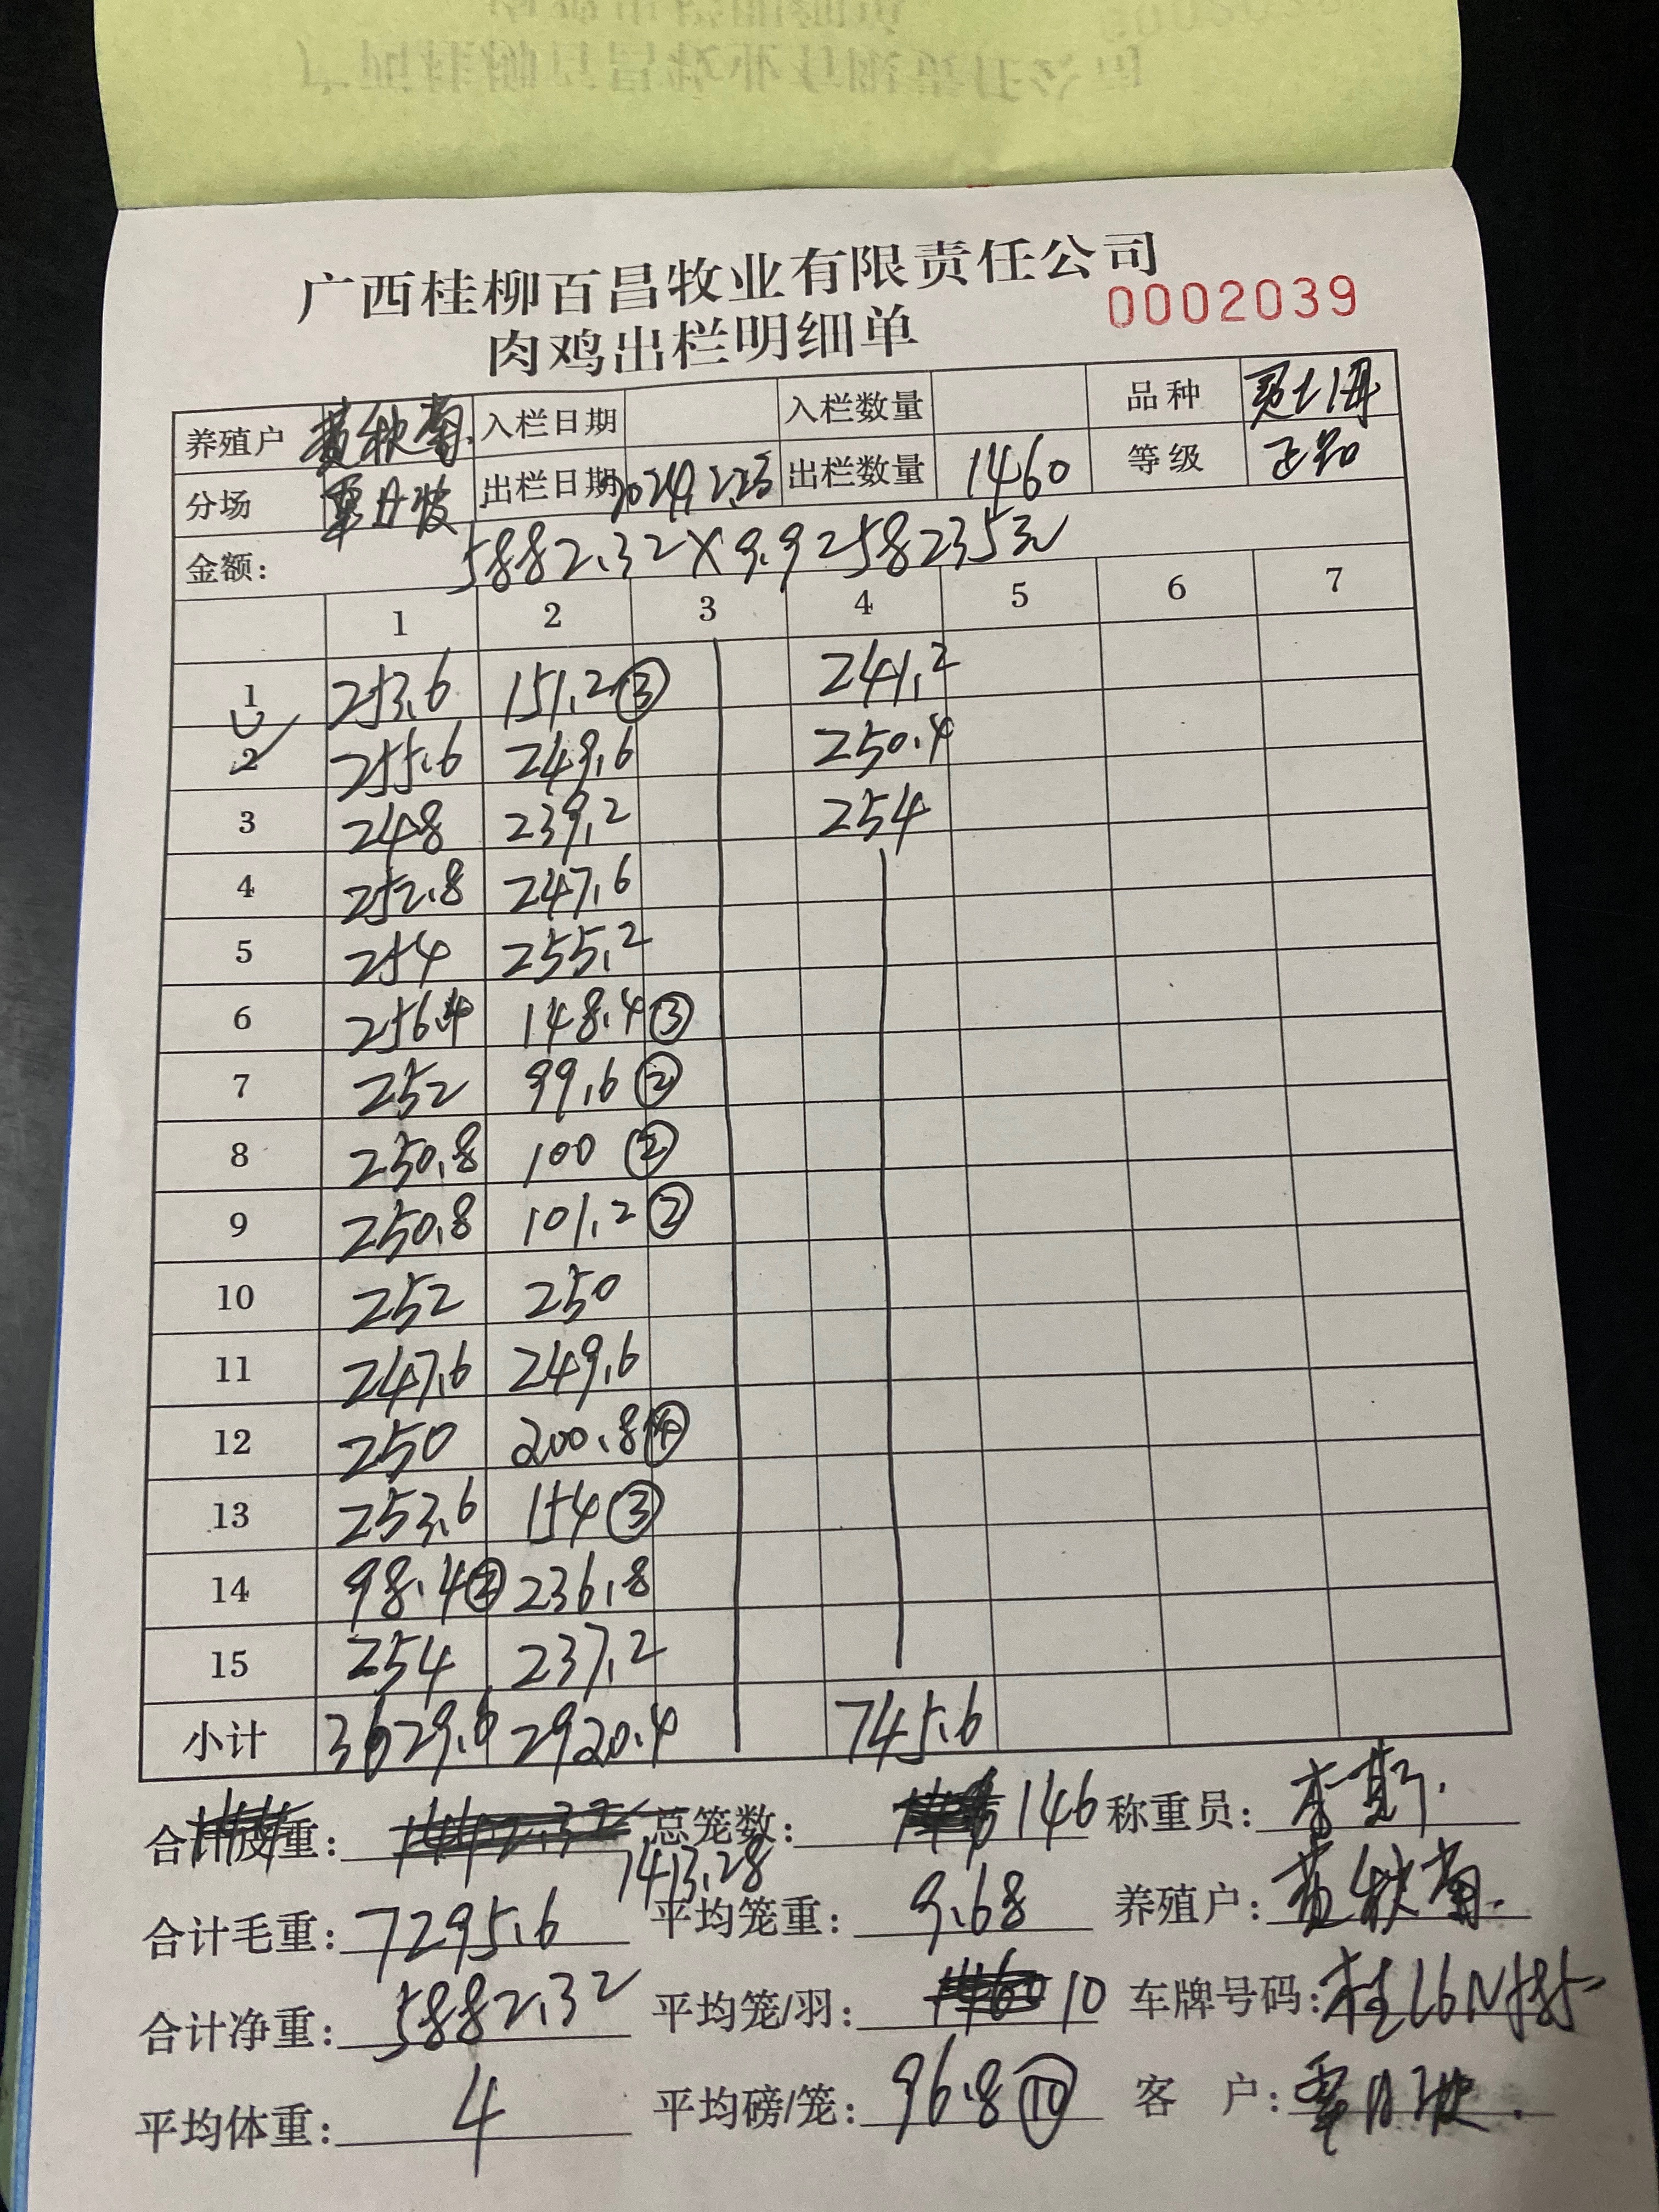 广西桂柳百昌牧业有限责任公司
0002039
肉鸡出栏明细单
养殖户 黄秋菊 入栏日期 入栏数量 品种
分场 出栏日期 2024.2.23 出栏数量 1460 等级 正品
金额: 5882.32×9.9=58235元
1 2 3 4 5 6 7
1 253.6 151.2③ 241.2
2 255.6 249.6 250.4
3 248 239.2 254
4 252.8 247.6
5 254 255.2
6 256.4 148.4③
7 252 99.6②
8 250.8 100②
9 250.8 101.2②
10 252 250
11 247.6 249.6
12 250 200.8④
13 253.6 154③
14 98.4② 236.8
15 254 237.2
小计 3629.6 2920.4 745.6
合计皮重: 1413.28 总笼数: 146 称重员:
合计毛重: 7295.6 平均笼重: 9.68 养殖户: 黄秋菊
合计净重: 5882.32 平均笼/羽: 10 车牌号码:
平均体重: 4 平均磅/笼: 96.8⑩ 客户: